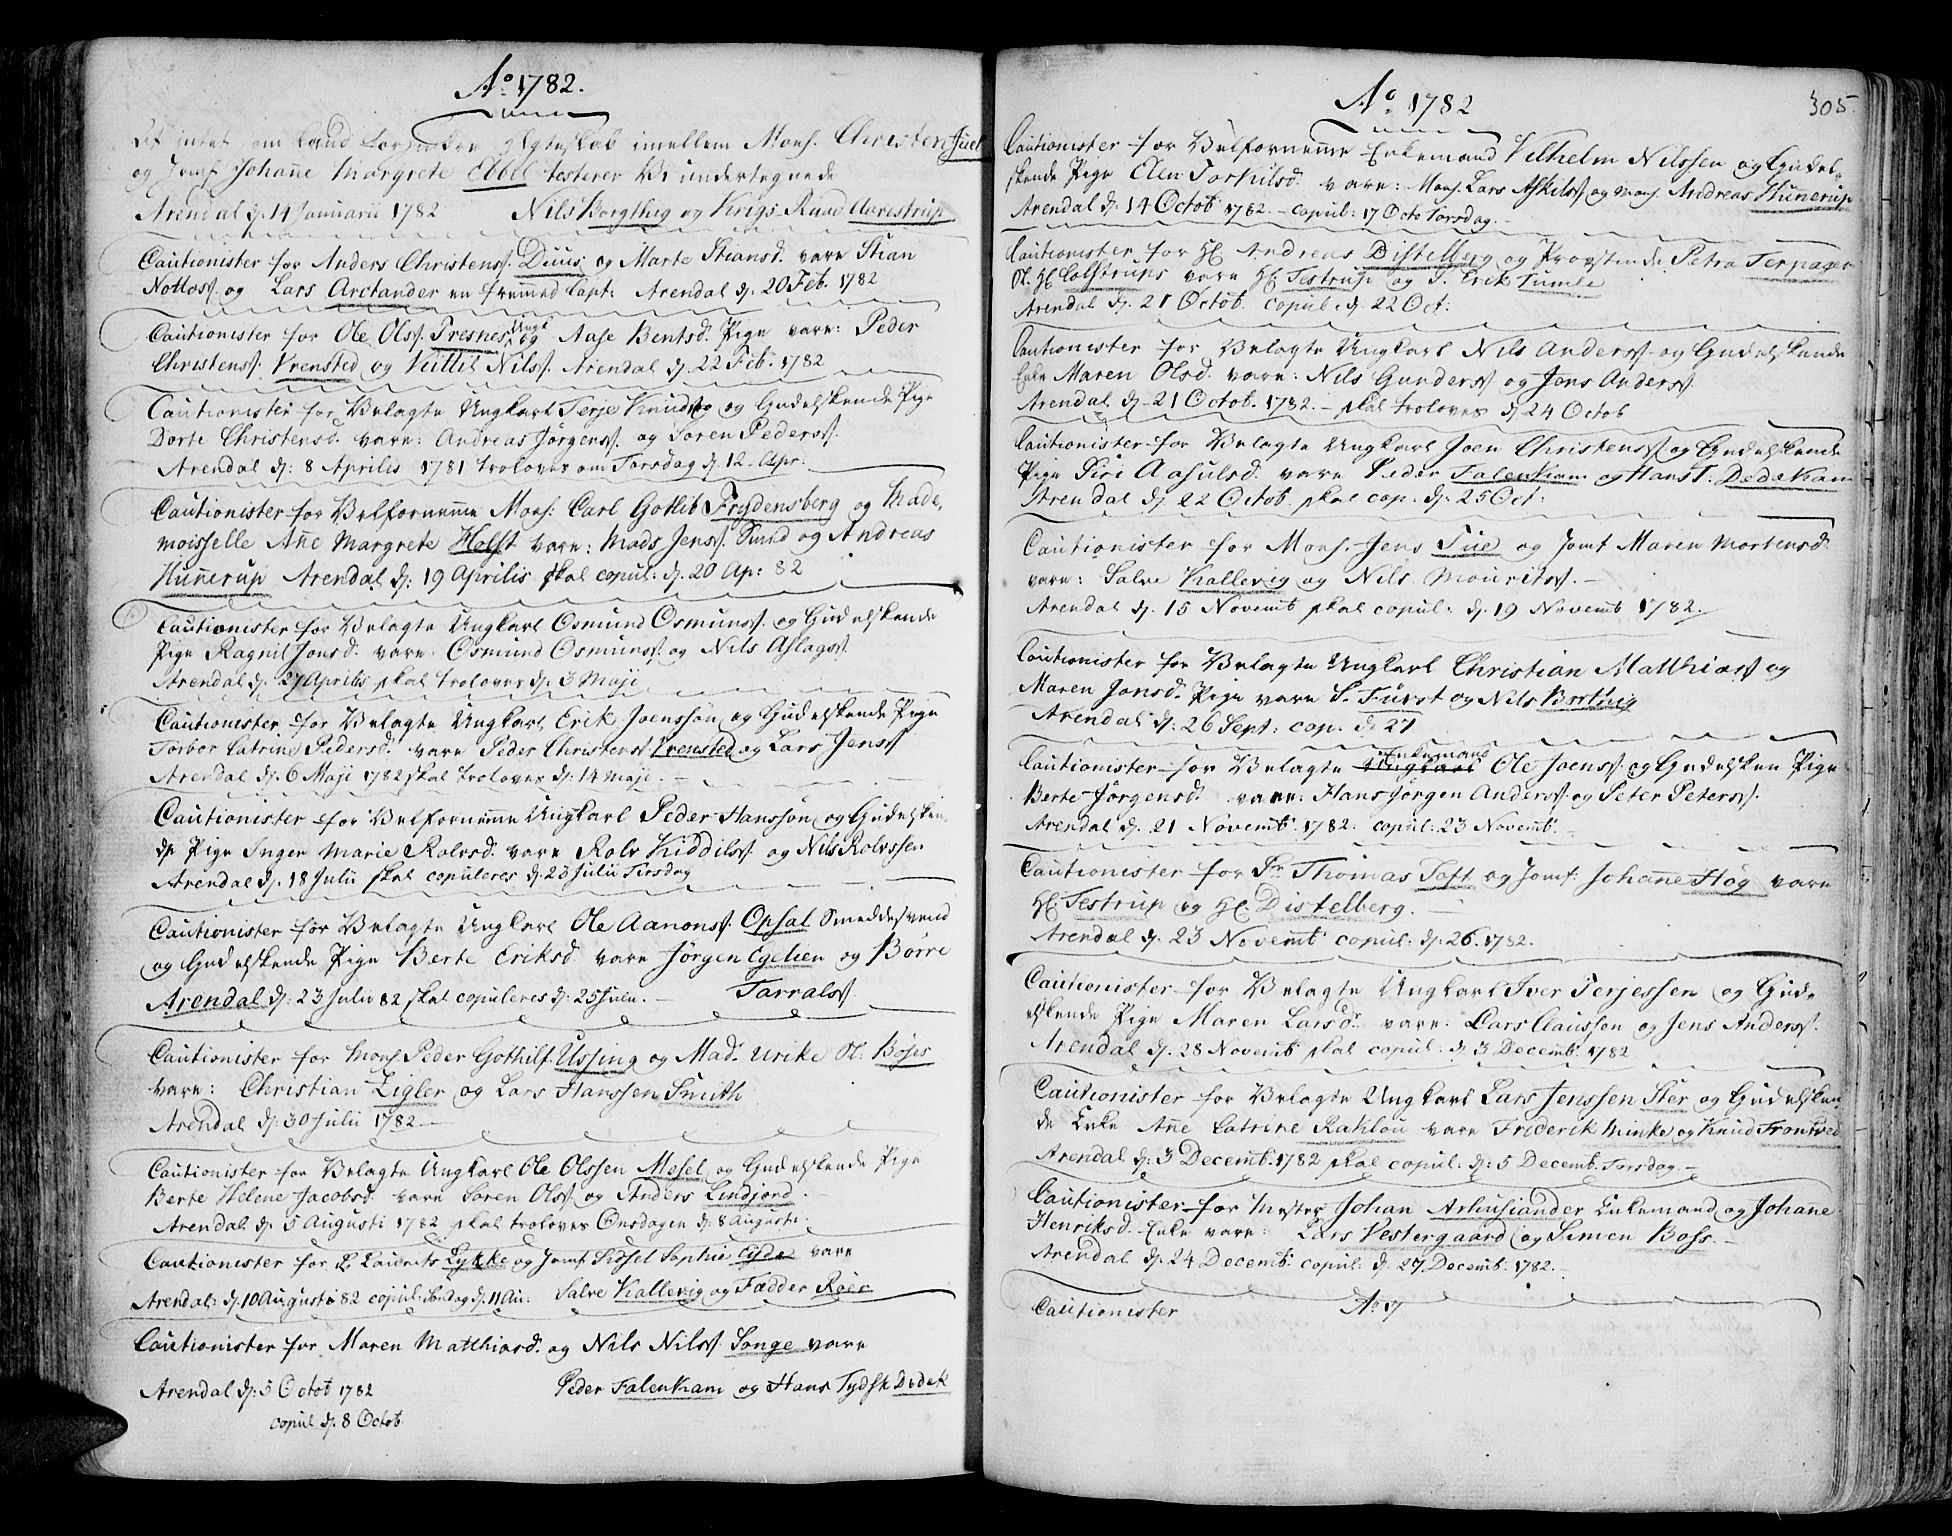 Ao 1782.
Et intet som kand forhindre Egteskab imellem Mons. Christen Juel
og Jomf. Johanne Margrete Ebbel testerer Vi undertegnede
Arendal d. 14 Januarii 1782 Nils Borgthig og Krigs Raad Aarestrup.
Cautionister for Anders Christens. Duus og Marte Stiansd. vare Stian
Notlos. og Lars Arctander en fremmed Capt. Arendal d. 20 Feb. 1782
Cautionister for Ole Ols. Tresnes Ungk. og Aase Bentsd. Pige vare: Peder
Christens. Vrensted og Kittil Nils. Arendal d. 22 Feb. 1782
Cautionister for Velagte Ungkarl Terje Knuds. og Gudelskende Pige
Dorte Christensd. vare: Andreas Jørgens. og Søren Peders.
Arendal d: 8 Aprilis 1781 troloves om Torsdag d. 12. Apr:
Cautionister for Velfornemme Mons: Carl Gotlib Frydensberg og Made,
moisselle Anne Margrete Holst vare: Mads Jens. Smed og Andreas
Hunnerup Arendal d: 19 Aprilis skal copul: d. 20 Ap: 82
Cautionister for Velagte Ungkarl Osmund Osmuns. og Gudelskende
Pige Ragnil Jonsd. vare: Osmund Osmuns. og Nils Aslags.
Arendal d. 27 Aprilis skal troloves d. 3 Maji
Cautionister for Velagte Ungkarl Erik Joenssøn og Gudelskende Pige
Torbor Catrine Pedersd. vare Peder Christens. Vrensted og Lars Jens.
Arendal d. 6 Maji 1782 skal troloves d: 14 Maji. -
Cautionister for Velfornemme Ungkarl Peder Hanssøn og Gudelsken,
de Pige Inger Marie Rolvsd. vare Rolv Kiddils. og Nils Rolvssen
Arendal d. 18 Julii skal copuleres d. 23 Julii Tirsdag
Cautionister for Velagte Ungkarl Ole Aanons. Opsal Smeddesvend
og Gudelskende Pige Berte Eriksd. vare Jørgen Egelien og Børre
Arendal d: 23 Julii 82 skal copuleres d: 25 Julii. - Tarrals.
Cautionister for Mons. Peder Gothilf Ussing og Mad. Urike Sl. Boses
vare: Christian Zigler og Lars Hanssen Smith
Arendal d: 30 Julii 1782. -
Cautionister for Velagte Ungkarl Ole Olssen Mesel og Gudelskende Pige
Berte Helene Jacobsd. vare Søren Ols. og Anders Lindjord.
Arendal d. 5 Augusti 1782 skal troloves Onsdagen d: 8 Augusti.
Cautionister for Laurits Lykke og Jomf. Sidsel Sophie Eyde vare
Arendal: d. 10 Augusti 82 copul: Søndag d. 11 Au: Salve Kallevig og Fædder Roer
Cautionister for Maren Matthiasd. og Nils Nils. Songe vare
Arendal d: 5 Octob 1782 Peder Falenkam og Hans Tydsk Dedek
copul d. 8 Octob.
Ao 1782 305
Cautionister for Velfornemme Enkemand Vilhelm Nilssen og Gudel,
skende Pige Elen Torkilsd. vare: Mons. Lars Askils. og Mons. Andreas Hunerup
Arendal d. 14 Octob 1782. - copul: 17 Octo Torsdag. -
Cautionister for Hl. Andreas Distelberg og Provstinde Petra Terpager
Sl. Hl Colstrups vare Hl. Testrup og S. Erik Tumle
Arendal d. 21 Octob. copul. d. 22 Oct:
Cautionister for Velagte Ungkarl Nils Anders. og Gudelskende
Enke Maren Olsd. vare: Nils Gunders. og Jens Anders.
Arendal d. 21 Octob. 1782. - skal troloves d. 24 Octob
Cautionister for Velagte Ungkarl Joen Christens. og Gudelskende
Pige Siri Aasulsd. vare Peder Falenkam og Hans T. Dedekam
Arendal d. 22 Octob. skal cop. d. 25 Oct:
Cautionister for Mons. Jens Tue og Jomf Maren Mortensd.
vare: Salve Kallevig og Nils Mourits. -
Arendal d. 15 Novemb skal copul: d. 19 Novemb 1782.
Cautionister for Velagte Ungkarl Christian Matthias. og
Maren Jonsd. Pige vare S. Fürst og Nils Borthig
Arendal d. 26 Sept: cop. d. 27
Cautionister for Velagte Ungkarl Enkemand Ole Joens. og Gudelsken Pige
Berte Jørgensd. vare: Hans Jørgen Anders. og Peter Peters.
Arendal d. 21 Novemb. 1782. copul: 23 Novemb.
Cautionister for Sr. Thomas Toft og Jomf. Johanne Høg vare
Hl. Testrup og Hl. Distelberg. -
Arendal d. 23 Novemb copul: d. 26. 1782.
Cautionister for Velagte Ungkarl Iver Terjessen og Gud,
elskende Pige Maren Larsd. vare: Lars Claussen og Jens Anders.
Arendal d. 28 Novemb skal copul: d 3 Decemb. 1782
Cautionister for Velagte Ungkarl Lars Jenssen Ster og Gudelsken,
de Enke Anne Catrine Raklou vare Friderik Minke og Knud Tromtved
Arendal d: 3 Decemb. 1782 skal copul: d: 5 Decemb. Torsdag. -
Cautionister for Mester Johan Arhusiander Enkemand og Johane
Henriksd. Enke vare: Lars Vestergaard og Simon Boss. -
Arendal d. 24 Decemb. copul: d. 27 Decemb: 1782. -
Cautionister Ao 17